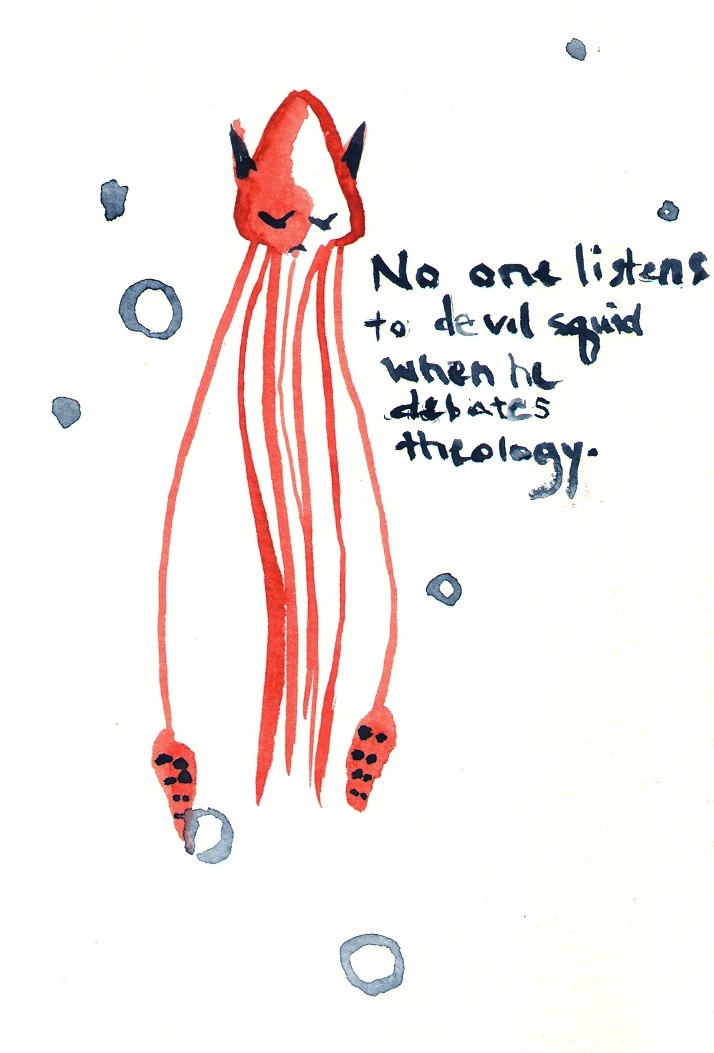 No one listens
to devil squid
when he
debates
theology.